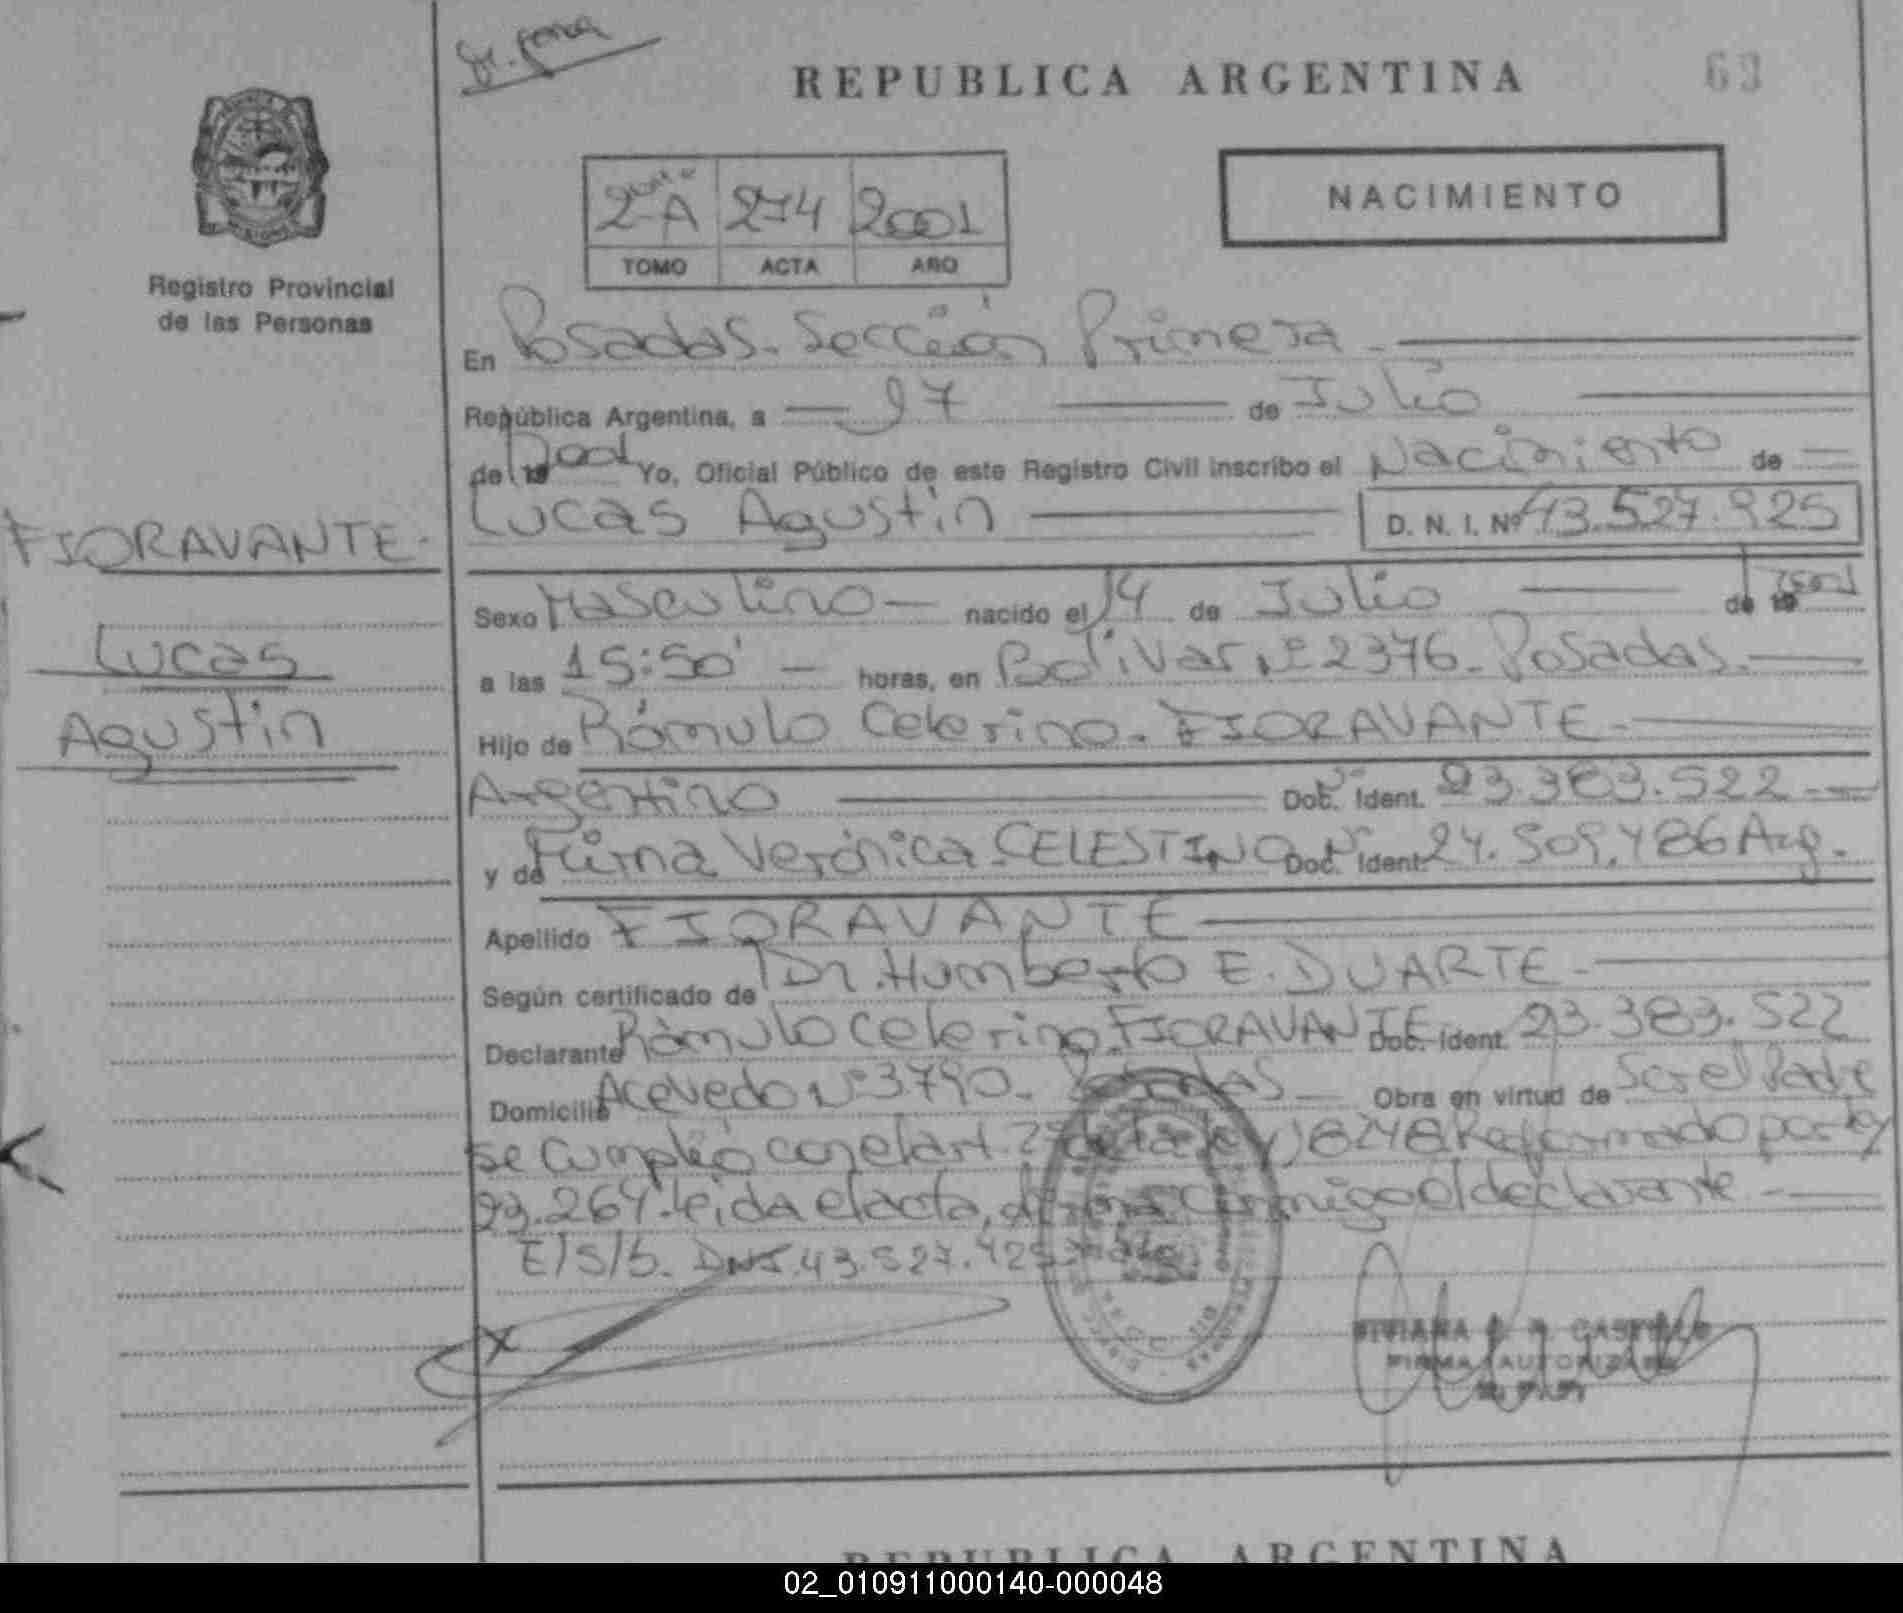 REPUBLICA ARGENTINA
63
NACIMIENTO
2-A 274 2001
TOMO ACTA AÑO
Registro Provincial
de las Personas
En Posadas. Sección Primera
República Argentina, a 27 de Julio
de 2001 Yo, Oficial Público de este Registro Civil inscribo el Nacimiento de
Lucas Agustín D. N. I. Nº 43.527.925
FIORAVANTE.
Lucas
Agustín
Sexo Masculino nacido el 14 de Julio de 2001
a las 15:50' horas, en Bolívar Nº 2376. Posadas.
Hijo de Rómulo Celerino. FIORAVANTE
Argentino Doc. Ident. 23.383.522
y de Verónica CELESTINO Doc. Ident. 24. 509.486 Arg.
Apellido FIORAVANTE
Según certificado de Dr. Humberto E. DUARTE
Declarante Rómulo Celerino FIORAVANTE Doc. Ident. 23.383.522
Domicilio Acevedo Nº 3790. Posadas Obra en virtud de Ser el Padre
se cumplió con el art. 2º de la ley 18248 Reformado por ley
23.264. leída el acta, conmigo el declarante
E/S/b. DNI. 43.527.425
FIRMA AUTORIZADA
REPUBLICA ARGENTINA
02_010911000140-000048